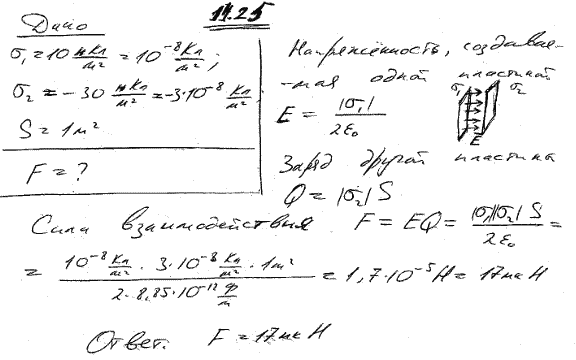 14.25
Дано
σ₁ = 10 нКл/м² = 10⁻⁸ Кл/м²;
σ₂ = -30 нКл/м² = -3·10⁻⁸ Кл/м²;
S = 1 м²
F = ?
Напряжённость, создавае-
-мая одной пластиной
E = |σ₁|/2ε₀
σ₁ σ₂
E
Заряд другой пластины
Q = |σ₂| S
Сила взаимодействия F = EQ = |σ₁||σ₂| S/2ε₀ =
= 10⁻⁸ Кл/м² · 3·10⁻⁸ Кл/м² · 1м²/2·8,85·10⁻¹² Ф/м = 1,7·10⁻⁵ Н = 17мкН
Ответ: F = 17мкН